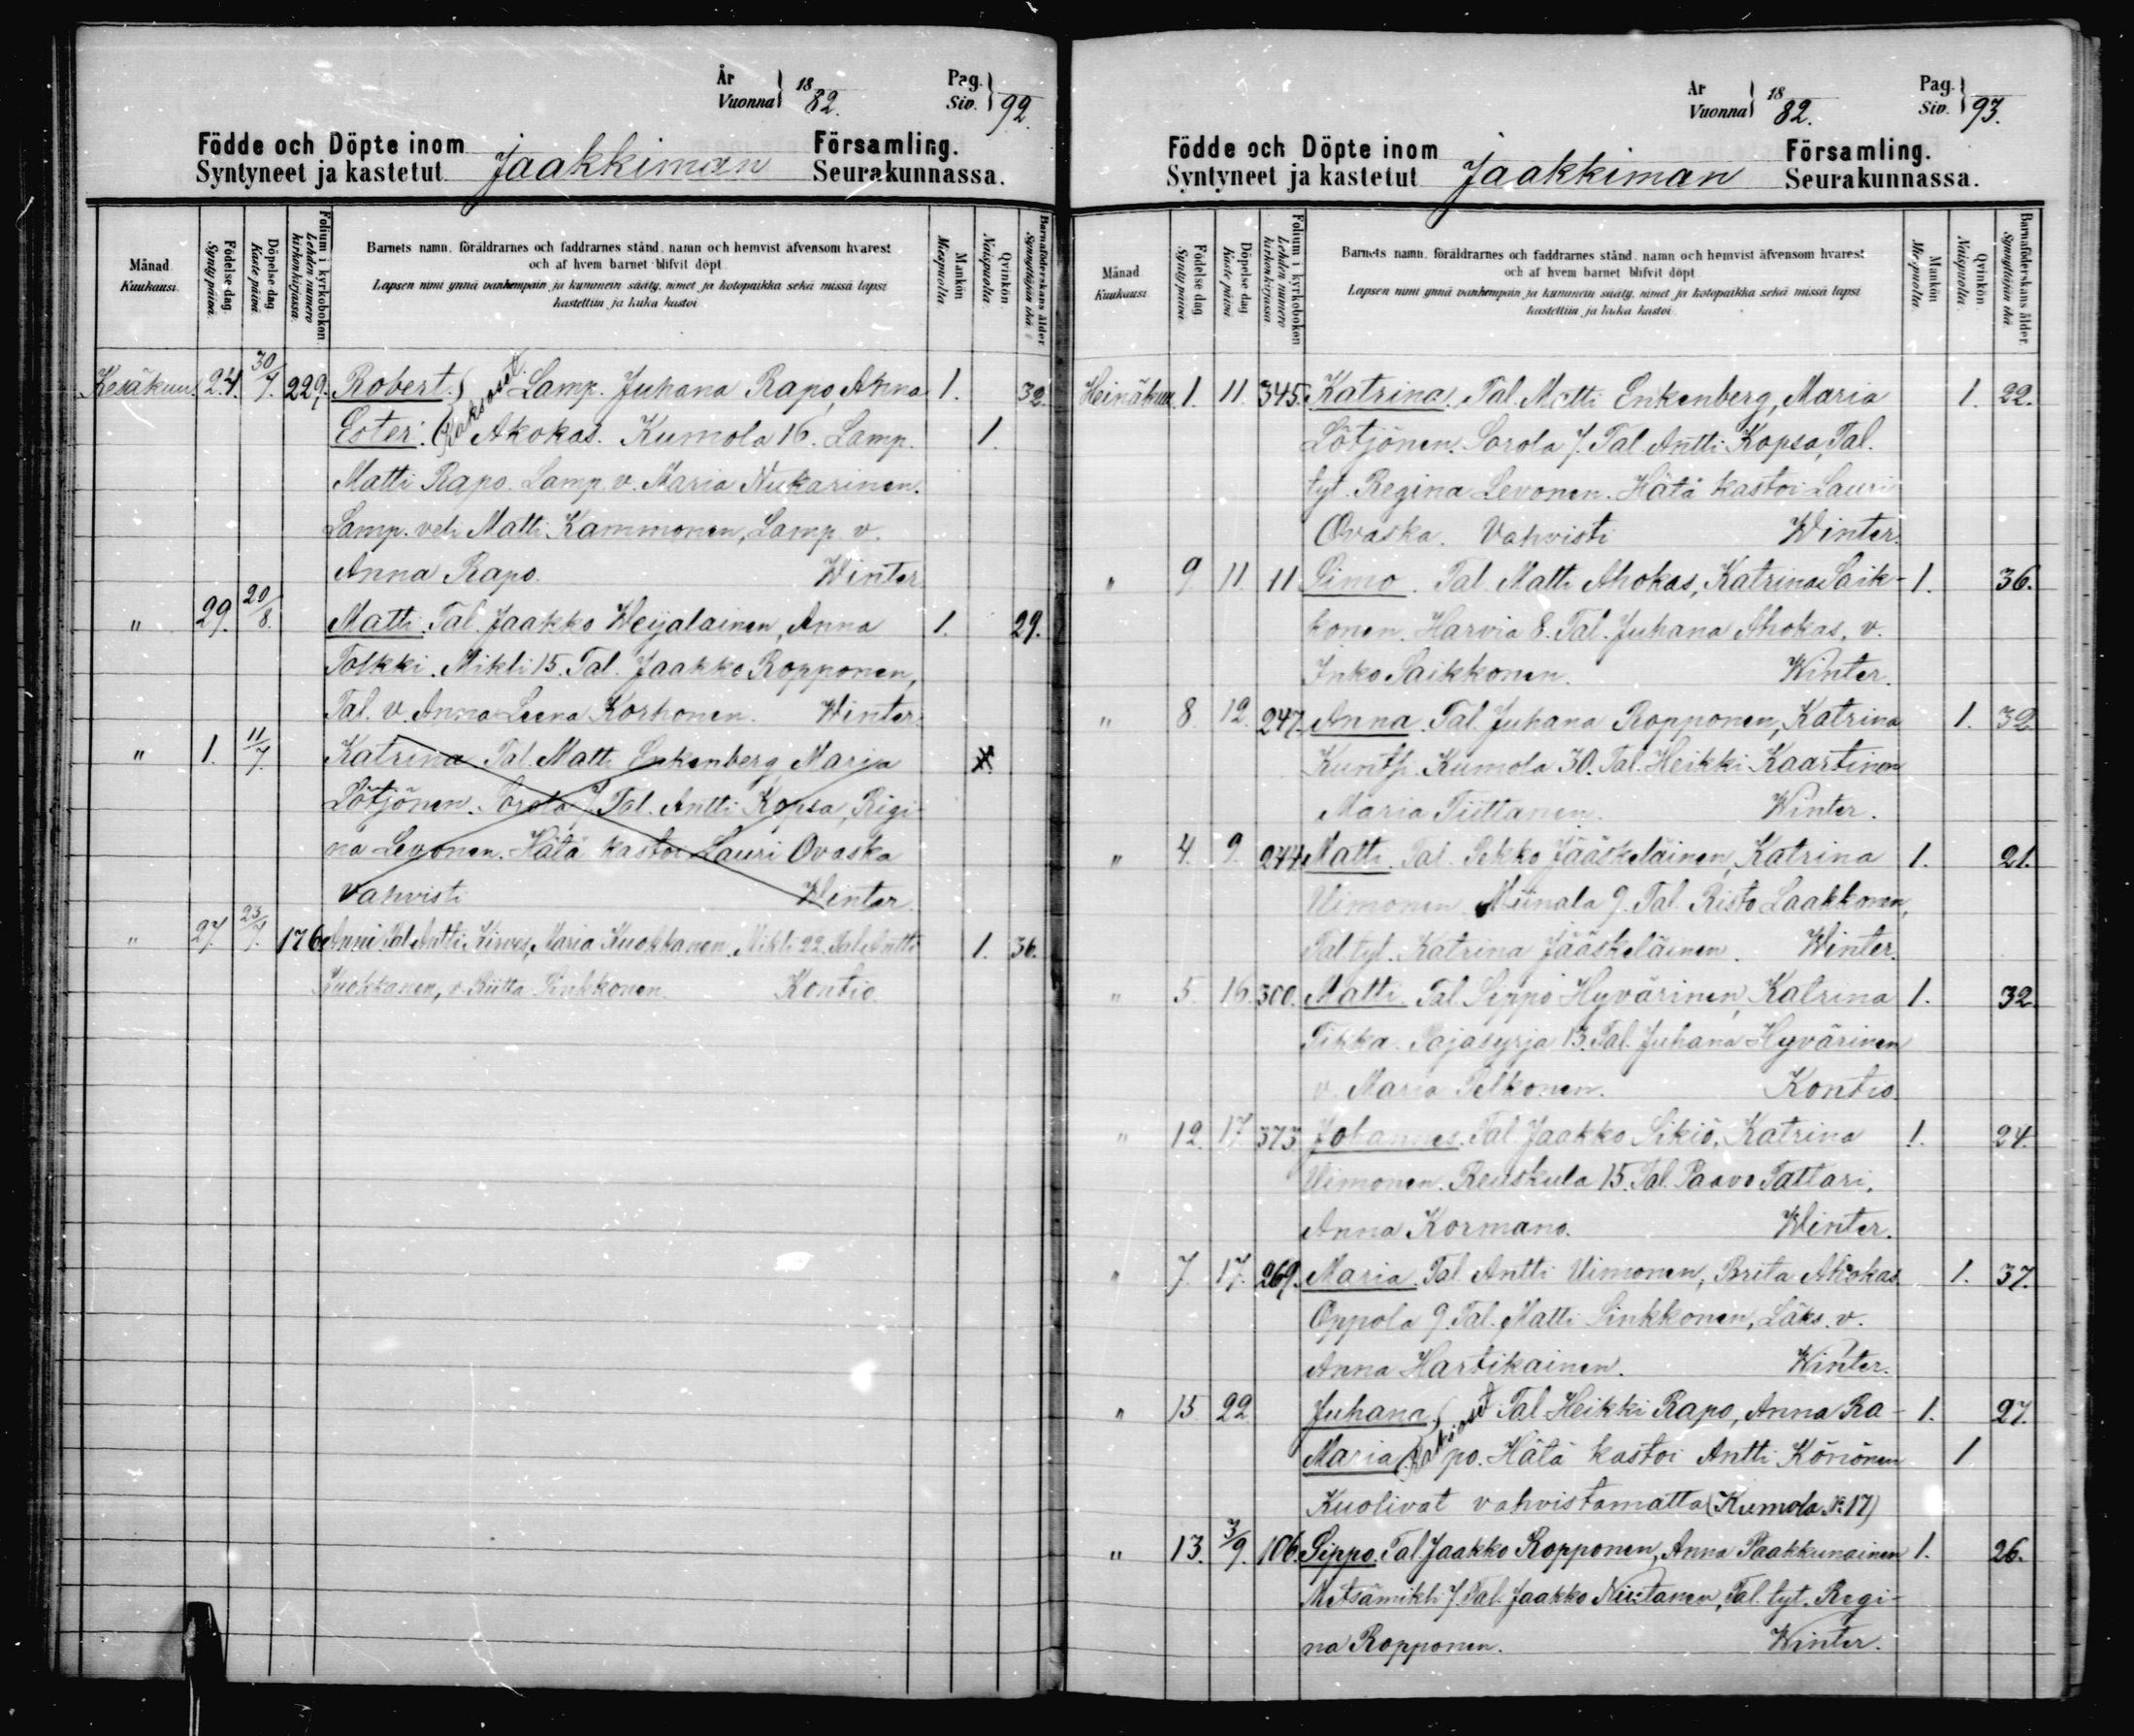 År
Vuonna 1882.
Pag.
Siv. 92.
Födde och Döpte inom
Syntyneet ja kastetut
Jaakkiman
Församling.
Seurakunnassa.
Månad
Kuukausi
Födelse dag.
Synty päivä.
Döpelse dag
Kaste päivä
Folium i kyrkobokon
Lehden numero
kirkonkirjassa.
Barnets namn, föräldrarnes och faddrarnes stånd, namn och hemvist äfvensom hvarest
och af hvem barnet blifvit döpt
Lapsen nimi ynnä vanhempain ja kummein sääty, nimet ja kotopaikka sekä missä lapsi
kastettiin ja kuka kastoi
Mankön
Miespuolta.
Qvinkön
Naispuolta.
Barnaföderskans ålder
Synnyttäjän ikä.
Kesäkuu. 24. 30/7. 229. Robert. Kaksoset. Lamp. Juhana Rapo, Anna 1. 32.
Ester. Akokas. Kumola 16. Lamp. 1.
Matti Rapo. Lamp. v. Maria Nukarinen.
Lamp. veli Matti Kammonen, Lamp. v.
Anna Rapo. Winter
" 29. 20/8. Matti. Tal. Jaakko Weijalainen, Anna 1. 29.
Tolkki. Mikli 15. Tal. Jaakko Ropponen,
Tal. v. Anna Leena Korhonen. Winter.
" 1. 11/7. Katrina Tal. Matti Enkenberg, Maria
Lötjönen. Sorola 7. Tal. Antti Kopsa, Regi-
na Levonen. Hätä kastoi Lauri Ovaska
Vahvisti Winter.
" 27. 23/7. 176 Anni. Tal. Antti Hirvas, Maria Kuokkanen. Mikli 22. Tal. Antti 1. 36.
Kuokkanen, v. Riitta Sinkkonen. Kontio
År
Vuonna 1882.
Pag.
Siv. 93.
Födde och Döpte inom
Syntyneet ja kastetut
Jaakkiman
Församling.
Seurakunnassa.
Månad
Kuukausi
Födelse dag
Synty päivä
Döpelse dag
Kaste päivä
Folium i kyrkobokon
Lehden numero
kirkonkirjassa
Barnets namn, föräldrarnes och faddrarnes stånd, namn och hemvist äfvensom hvarest
och af hvem barnet blifvit döpt
Lapsen nimi ynnä vanhempain ja kummein sääty, nimet ja kotopaikka sekä missä lapsi
kastettiin ja kuka kastoi
Mankön
Miespuolta.
Qvinkön
Naispuolta.
Barnaföderskans ålder.
Synnyttäjän ikä.
Heinäkuu. 1. 11. 345. Katrina. Tal. Matti Enkenberg, Maria 1. 22.
Lötjönen. Sorola 7. Tal. Antti Kopsa, Tal.
tyt. Regina Levonen. Hätä kastoi Lauri
Ovaska. Vahvisti Winter.
" 9. 11. 11 Simo. Tal. Matti Ahokas, Katrina Saik- 1. 36.
konen. Harvia 8. Tal. Juhana Ahokas, v.
Inko Saikkonen. Winter.
" 8. 12. 247. Anna. Tal. Juhana Ropponen, Katrina 1. 32.
Kuntsi. Kumola 30. Tal. Heikki Kaartinen
Maria Tiittanen. Winter.
" 4. 9. 244 Matti. Tal. Pekko Jääskeläinen, Katrina 1. 21.
Uimonen. Miinala 9. Tal. Risto Laakkonen,
Tal. tyt. Katrina Jääskeläinen. Winter.
" 5. 16. 300. Matti. Tal. Sippo Hyvärinen, Katrina 1. 32.
Pikka. Pajasyrja 13. Tal. Juhana Hyvärinen
v. Maria Pelkonen. Kontio
" 12. 17. 373 Johannes. Tal. Jaakko Sikiö, Katrina 1. 24.
Uimonen. Reuskula 15. Tal. Paavo Tattari,
Anna Kormano. Winter.
" 7. 17. 269. Maria. Tal. Antti Uimonen, Brita Ahokas 1. 37.
Oppola 9. Tal. Matti Sinkkonen, Läks. v.
Anna Hartikainen. Winter.
" 15 22 Juhana. Kaksoiset Tal. Heikki Rapo, Anna Ra- 1. 27.
Maria po. Hätä kastoi Antti Könönen 1
Kuolivat vahvistamatta (Kumola N:17)
" 13. 3/9. 106. Sippo. Tal. Jaakko Ropponen, Anna Paakkunainen 1. 26.
Metsämikli 7. Tal. Jaakko Niutanen, Tal. tyt. Regi-
na Ropponen. Winter.